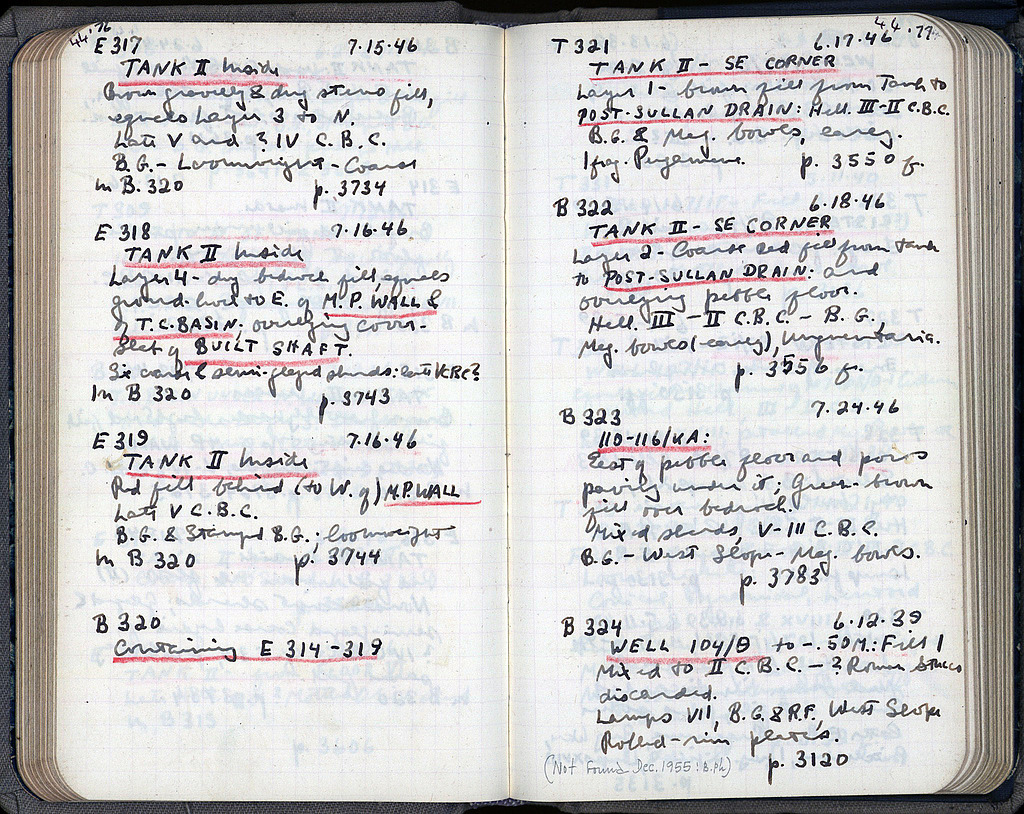 44·76
E 317 7·15·46
TANK II Inside
Brown gravelly & dug stereo fill,
equals Layer 3 to N.
Late V and ? IV C.B.C.
B.G. - Loomweight - Coarse
In B. 320 p. 3734
E 318 7·16·46
TANK II Inside
Layer 4 - dug bedrock fill, equals
ground-level to E. of M.P. WALL &
of T.C. BASIN; overlying cover-
slab of BUILT SHAFT.
Six coarse & semi-glazed sherds: late V C.B.C?
In B 320 p. 3743
E 319 7·16·46
TANK II Inside
Red fill behind (to W. of) M.P. WALL
Late V C.B.C.
B.G. & Stamped B.G.; loomweight
In B 320 p. 3744
B 320
Containing E 314-319
44·77
T 321 6·17·46
TANK II - SE CORNER
Layer 1 - brown fill from Tank to
POST-SULLAN DRAIN: Hell. III-II C.B.C.
B.G. & Meg. bowls, early.
1 frag. Pergamene. p. 3550 f.
B 322 6·18·46
TANK II - SE CORNER
Layer 2 - Coarse red fill from tank
to POST-SULLAN DRAIN. and
overlying pebble floor.
Hell. III - II C.B.C. - B.G.,
Meg. bowls (early), Unguentaria.
p. 3556 f.
B 323 7·24·46
110-116/KA:
East of pebble floor and poros
paving under it; Green-brown
fill over bedrock.
Mixed sherds, V-III C.B.C.
B.G. - West Slope - Meg. bowls.
p. 3783
B 324 6·12·39
WELL 104/Θ to -.50M.: Fill 1
Mixed to II C.B.C. - ? Roman
discarded.
Lamps VII, B.G. & R.F., West Slope
Rolled-rim plates.
(Not Found Dec. 1955: B.Ph) p. 3120